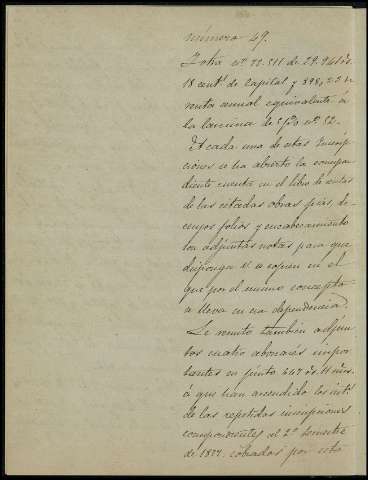 número 49.
Otra nº 22.511 de 29.941 rs.
18 centº de Capital y 898,23 de
renta anual equivalente á
la lamina de
A cada una de estas Inscrip
ciones se ha abierto la correspon
diente cuenta en el libro de rentas
de las citadas obras pias, de
cuyos folios y encabezamiento
son adjuntas notas para que
disponga V. se copien en el
que por el mismo concepto
se lleva en esa dependencia.
Le remito tambien adjun
tos cuatro abonarés impor
tantes en junto 447 rs. 11 mrs.
á que han ascendido los intº
de las repetidas inscripciones
correspondientes al 2º semestre
de 1877. cobrados por esta